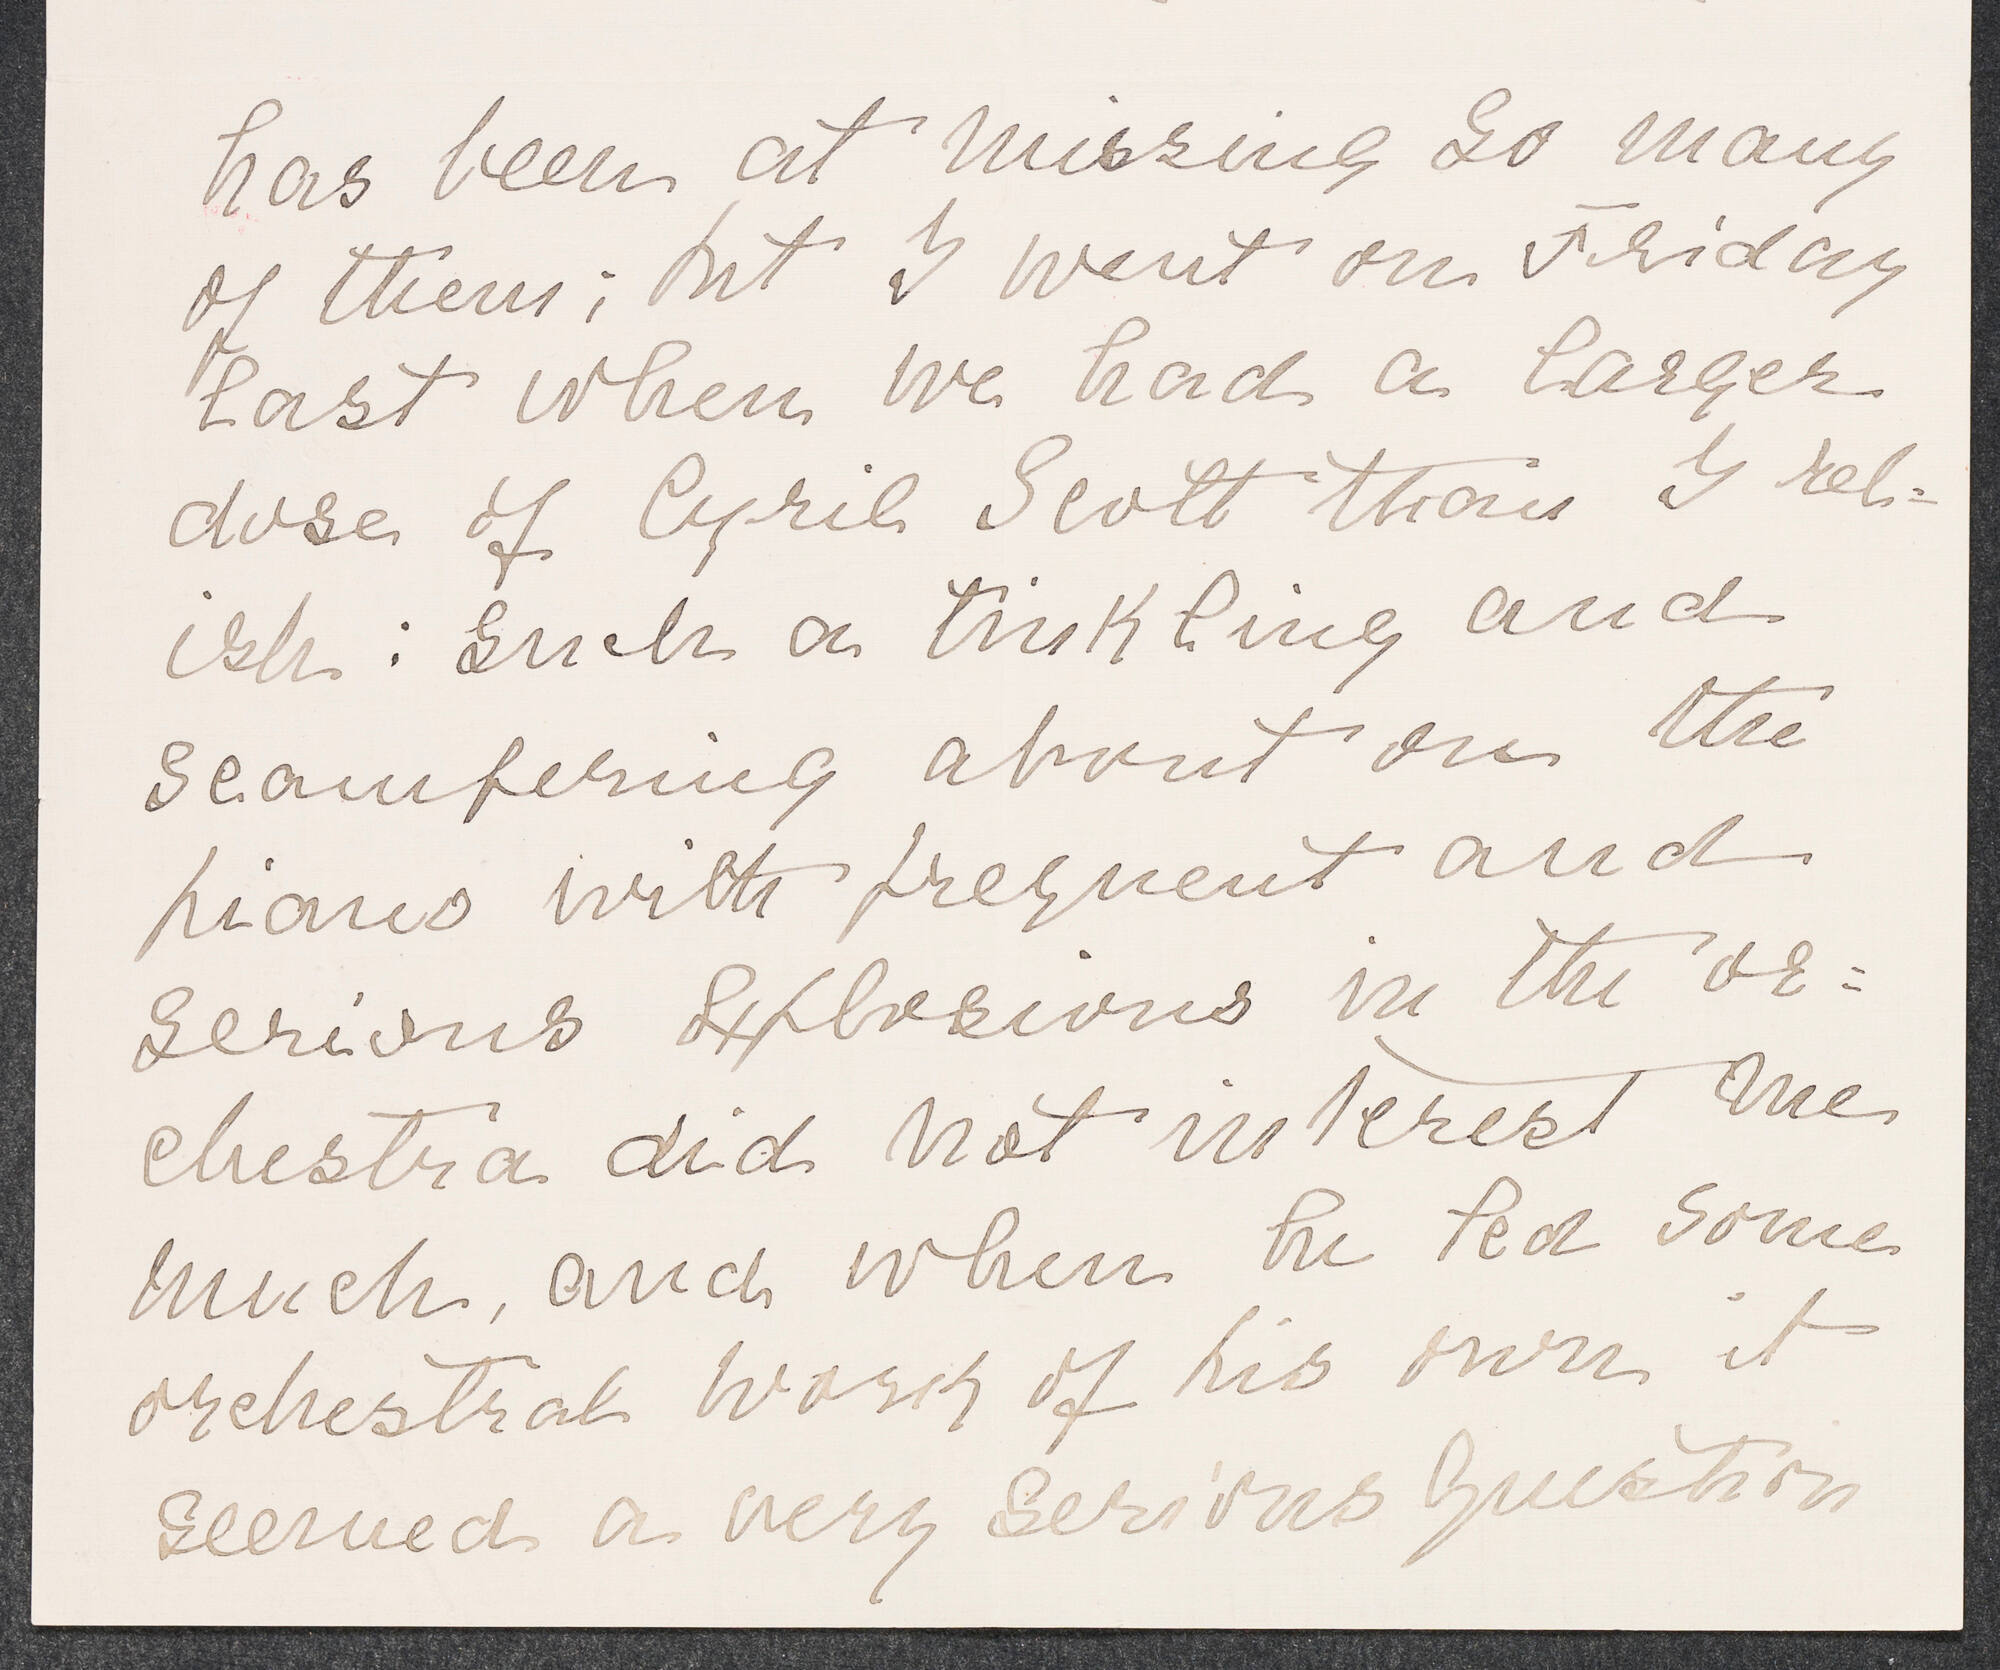 has been at missing so many
of them; but I went on Friday
last when we had a larger
dose of Cyril Scott than I rel=
ish: such a tinkling and
scampering about on the
piano with frequent and
serious explosions in the or=
chestra did not interest me
much, and when he led some
orchestral work of his own it
seemed a very serious question